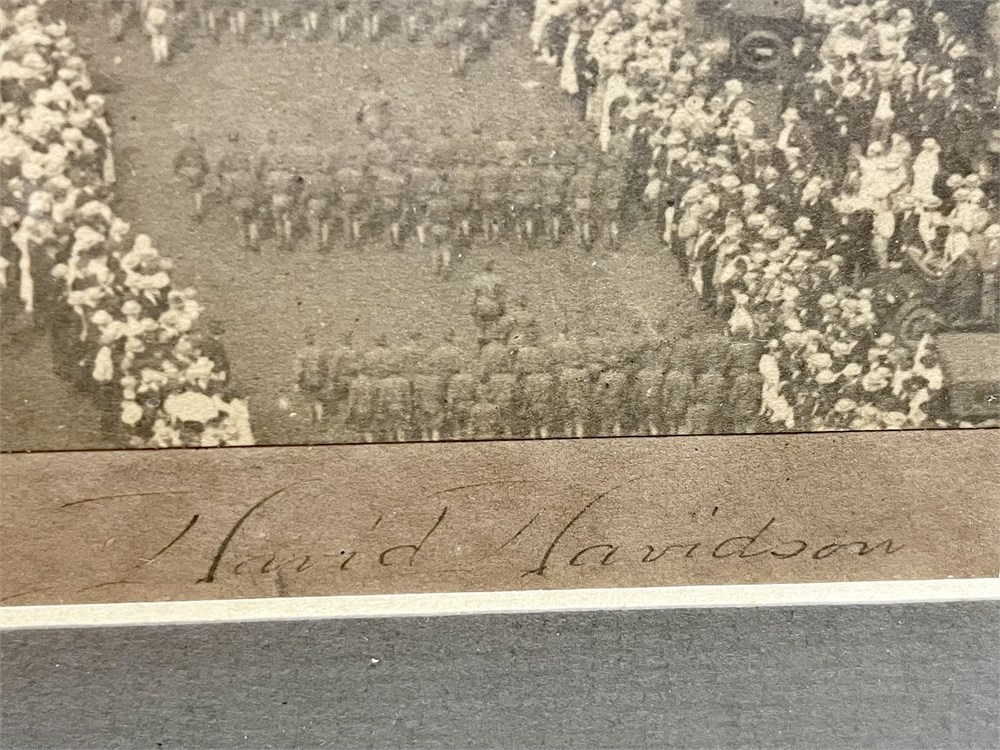 David Davidson